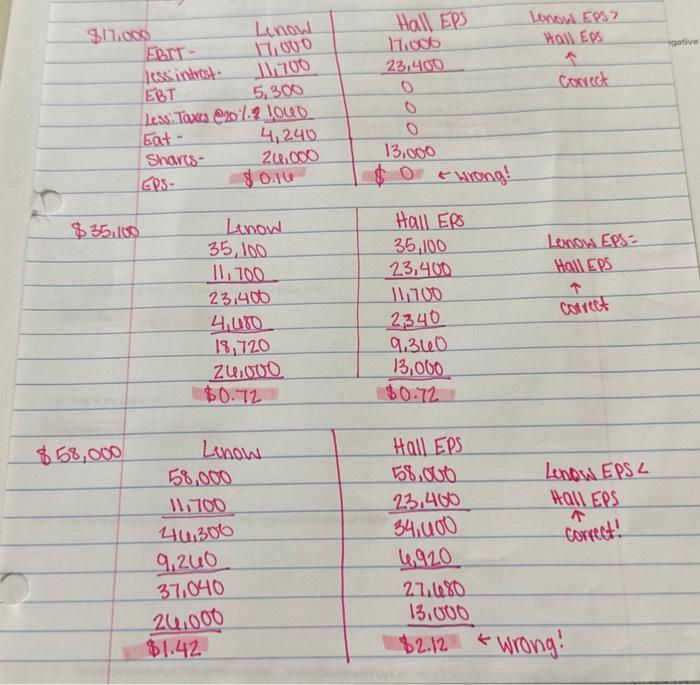 $17,000 Lenow Hall EPS Lenow EPS >
EBIT - 17,000 17,000 Hall EPS
gative
less: intrest - 11,700 23,400 ↑
EBT 5,300 0 correct
Less: Taxes @20% 1060 0
Eat - 4,240 0
Shares - 26,000 13,000
EPS - $0.16 $ 0 ← wrong!
$35,100 Lenow Hall EPS
35,100 35,100 Lenow EPS =
11,700 23,400 Hall EPS
23,400 11,700 ↑
4,680 2,340 correct
18,720 9,360
26,000 13,000
$0.72 $0.72
$58,000 Lenow Hall EPS
58,000 58,000 Lenow EPS <
11,700 23,400 Hall EPS
46,300 34,600 ↑
9,260 6,920 correct!
37,040 27,680
26,000 13,000
$1.42 $2.12 ← wrong!